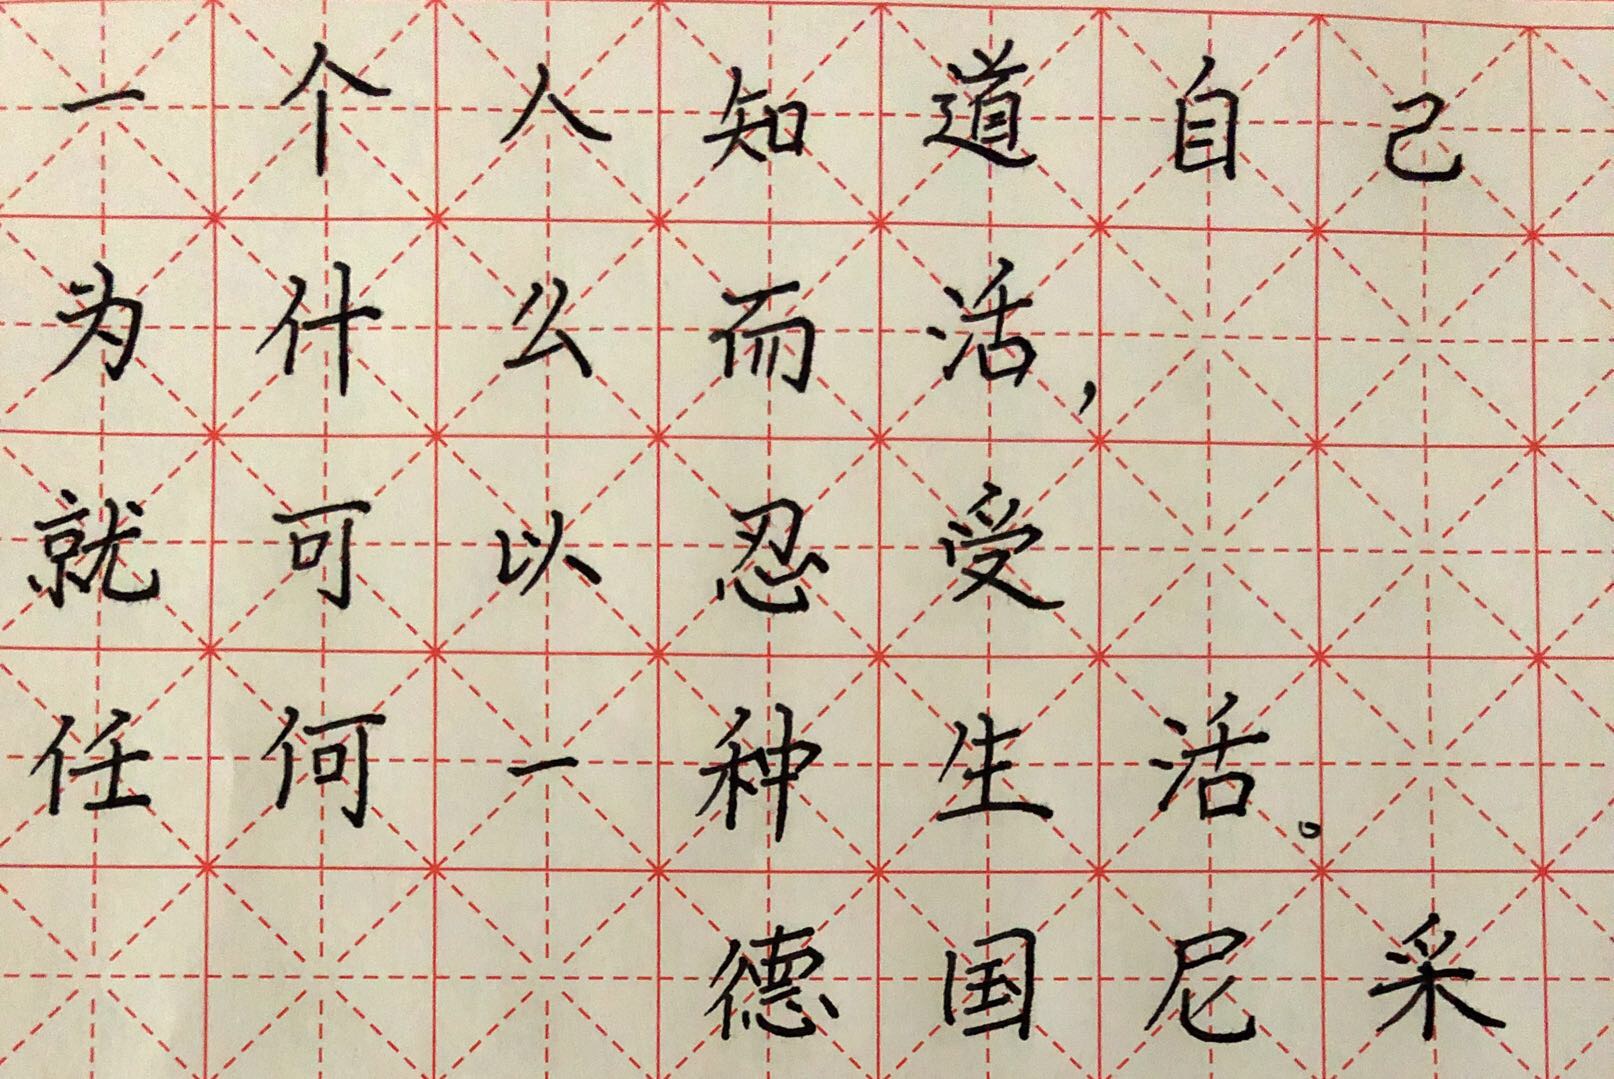 一个人知道自己
为什么而活，
就可以忍受
任何一种生活。
德国尼采